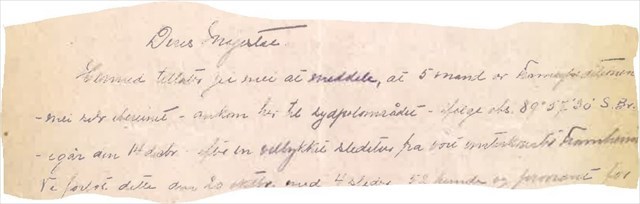 Deres Majestæt.
Hermed tillater jeg mei at meddele, at 5 mand av Framekspeditionen
- mei selv iberegnet - ankom her til sydpolområdet - ifølge obs. 89° 57' 30" S. Br.
- igår den 14 dcbr. efter en vellykket sledetur fra vort vinterkvarter "Framheim
Vi forlot dette den 20 oktbr. med 4 sleder, 52 hunde og proviant for